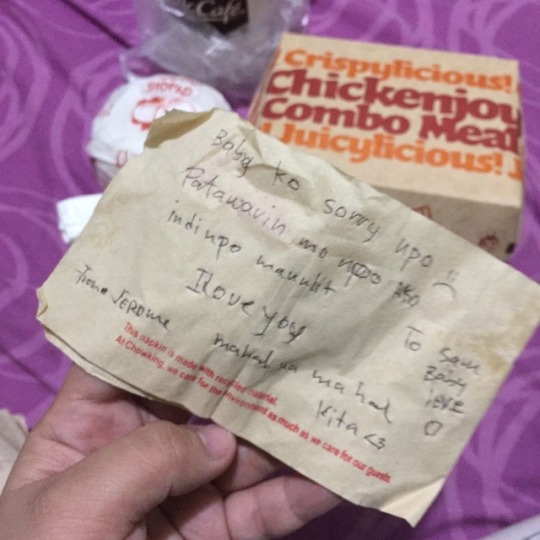 McCafé
Crispylicious!
Chickenjoy
Combo Meal
Juicylicious!
Baby ko sorry npo :(
Patawarin mo npo ako
indi npo mauulit
I love you
mahal na mahal
kita <3
From JEROME
To Sam
Baby
love
This napkin is made with recycled material.
At Chowking, we care for the environment as much as we care for our guests.